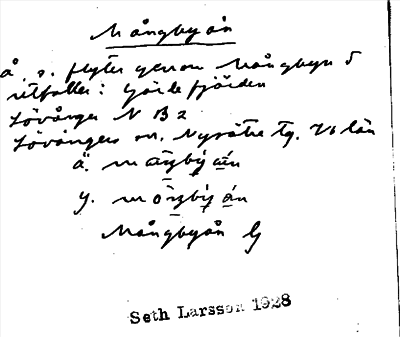 Mångbyån
Å, s. flyter genom Mångbyn o
utfaller i Gärdefjärden
Lövånger N B 2
Lövångers sn. Nysätra tg. Vb län
ä.
y.
Mångbyån G
Seth Larsson 1928